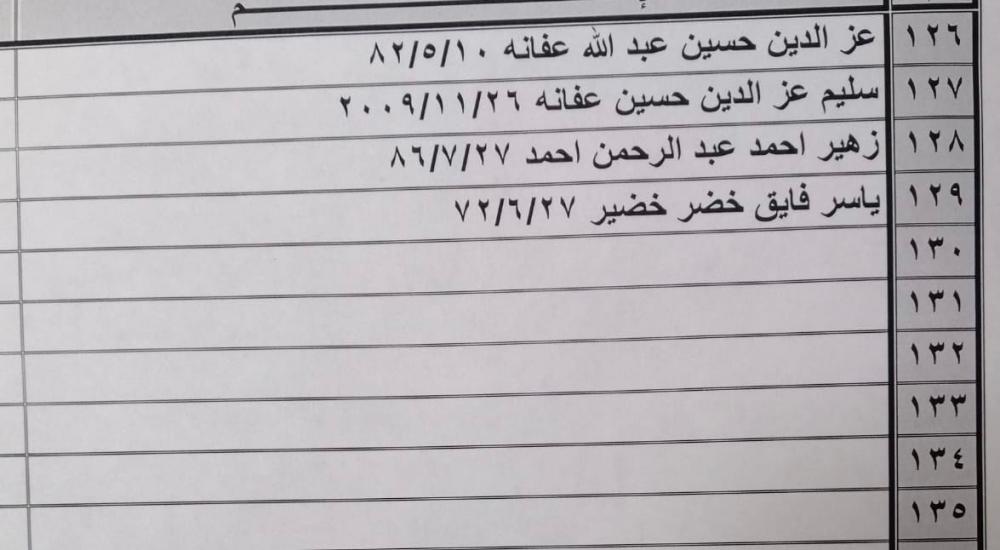 ١٢٦ عز الدين حسين عبد الله عفانه ٨٢/٥/١٠
١٢٧ سليم عز الدين حسين عفانه ٢٠٠٩/١١/٢٦
١٢٨ زهير احمد عبد الرحمن احمد ٨٦/٧/٢٧
١٢٩ ياسر فايق خضر خضير ٧٢/٦/٢٧
١٣٠
١٣١
١٣٢
١٣٣
١٣٤
١٣٥